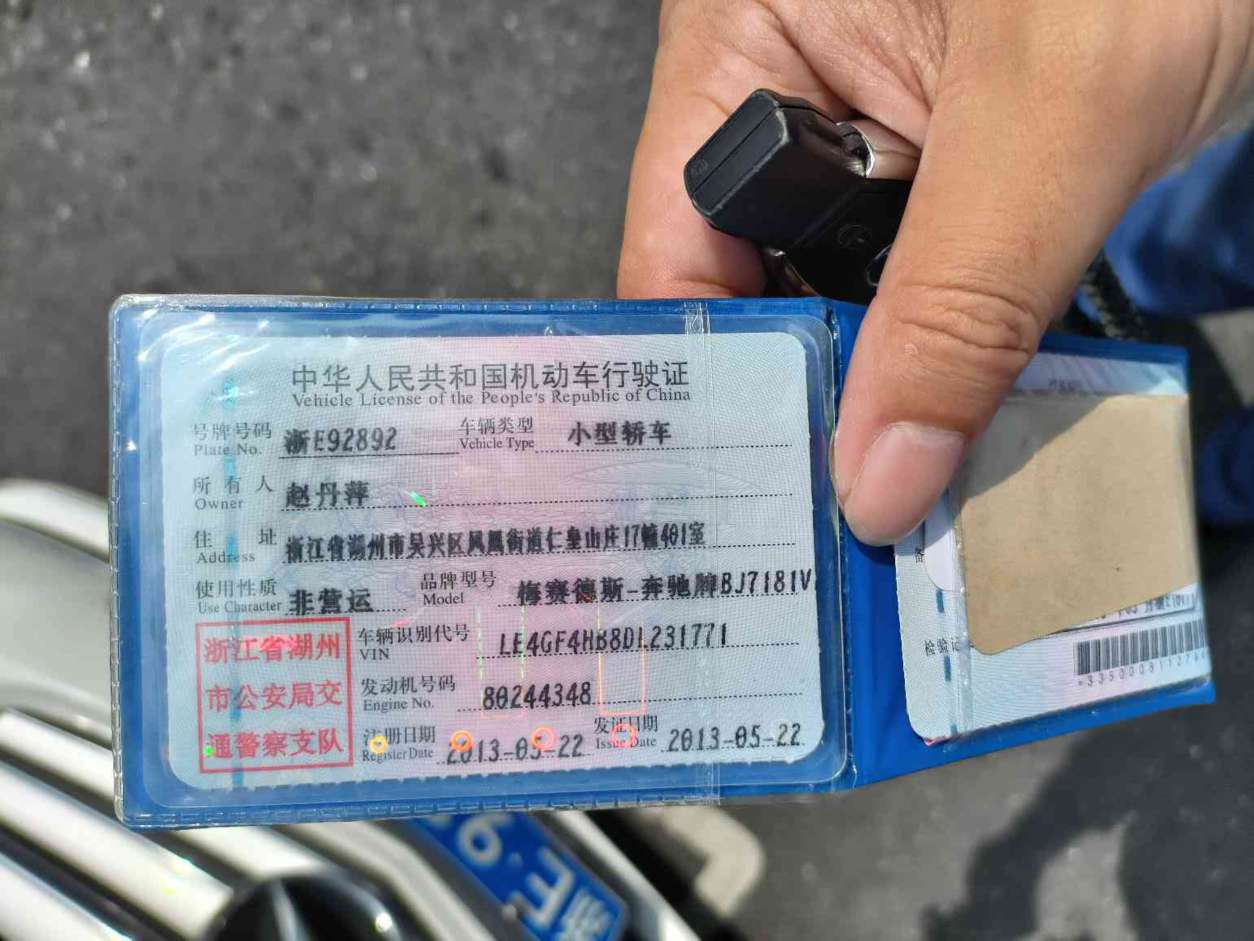 中华人民共和国机动车行驶证
Vehicle License of the People's Republic of China
号牌号码 浙E92892 车辆类型 小型轿车
Plate No. Vehicle Type
所有人 赵丹萍
Owner
住址 浙江省湖州市吴兴区凤凰街道仁皇山庄17幢401室
Address
使用性质 非营运 品牌型号 梅赛德斯-奔驰牌BJ7181V
Use Character Model
浙江省湖州
市公安局交
通警察支队
车辆识别代号 LE4GF4HB8DL231771
VIN
发动机号码 80244348
Engine No.
注册日期 2013-05-22 发证日期 2013-05-22
Register Date Issue Date
备
检验记